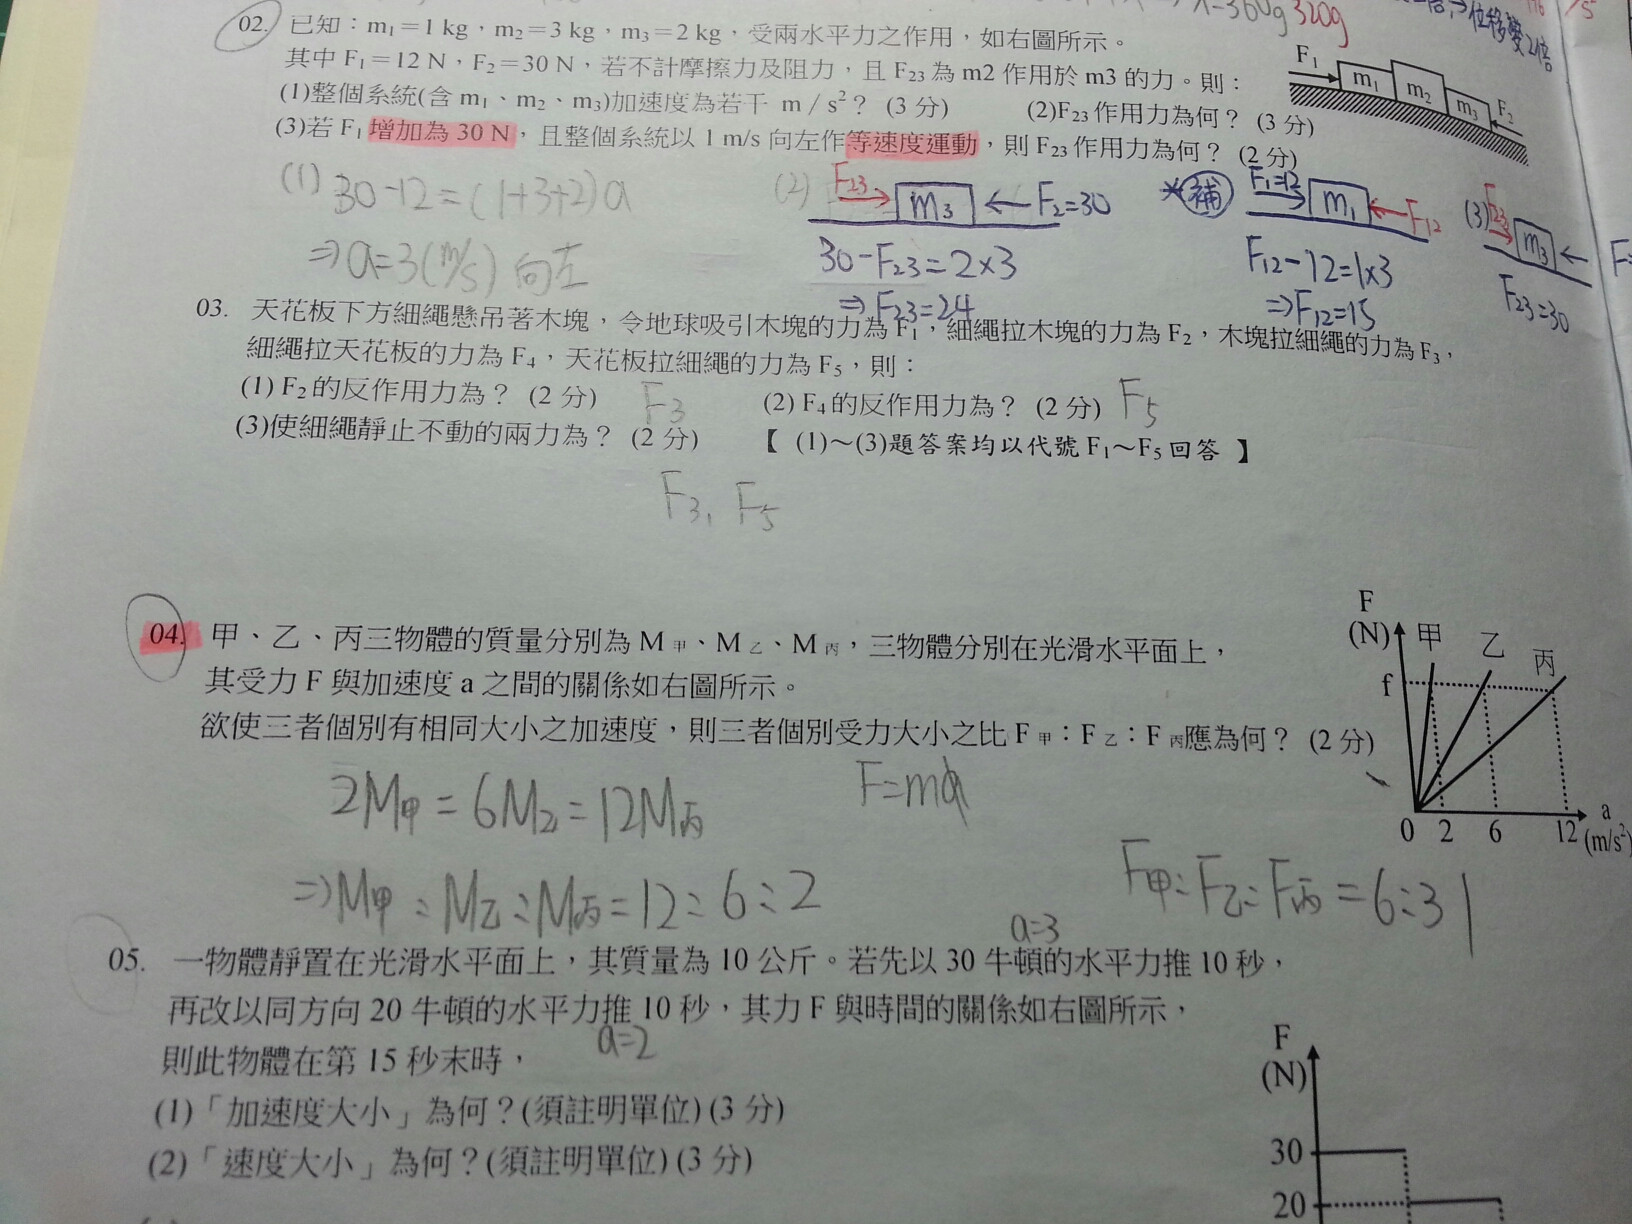 320g
位移變2倍
02. 已知：m₁＝1 kg，m₂＝3 kg，m₃＝2 kg，受兩水平力之作用，如右圖所示。
其中 F₁＝12 N，F₂＝30 N，若不計摩擦力及阻力，且 F₂₃ 為 m2 作用於 m3 的力。則：
(1)整個系統(含 m₁、m₂、m₃)加速度為若干 m / s²？ (3 分) (2)F₂₃ 作用力為何？ (3 分)
(3)若 F₁ 增加為 30 N，且整個系統以 1 m/s 向左作等速度運動，則 F₂₃ 作用力為何？ (2 分)
F₁ m₁ m₂ m₃ F₂
(1) 30-12=(1+3+2)a
⇒a=3(m/s) 向左
(2) F₂₃ m₃ F₂=30
30-F₂₃=2×3
⇒F₂₃=24
*補 F₁=12 m₁ F₁₂
F₁₂-12=1×3
⇒F₁₂=15
(3) F₂₃ m₃
F₂₃=30
03. 天花板下方細繩懸吊著木塊，令地球吸引木塊的力為 F₁，細繩拉木塊的力為 F₂，木塊拉細繩的力為 F₃，
細繩拉天花板的力為 F₄，天花板拉細繩的力為 F₅，則：
(1) F₂ 的反作用力為？ (2 分) F₃ (2) F₄ 的反作用力為？ (2 分) F₅
(3)使細繩靜止不動的兩力為？ (2 分) 【 (1)～(3)題答案均以代號 F₁～F₅ 回答 】
F₃, F₅
04. 甲、乙、丙三物體的質量分別為 M甲、M乙、M丙，三物體分別在光滑水平面上，
其受力 F 與加速度 a 之間的關係如右圖所示。
欲使三者個別有相同大小之加速度，則三者個別受力大小之比 F甲：F乙：F丙應為何？ (2 分)
F
(N) 甲 乙 丙
f
0 2 6 12 a
(m/s²)
2M甲=6M乙=12M丙 F=ma
⇒M甲:M乙:M丙=12:6:2 F甲:F乙:F丙=6:3 1
a=3
05. 一物體靜置在光滑水平面上，其質量為 10 公斤。若先以 30 牛頓的水平力推 10 秒，
再改以同方向 20 牛頓的水平力推 10 秒，其力 F 與時間的關係如右圖所示，
a=2
則此物體在第 15 秒末時，
(1)「加速度大小」為何？(須註明單位) (3 分)
(2)「速度大小」為何？(須註明單位) (3 分)
F
(N)
30
20